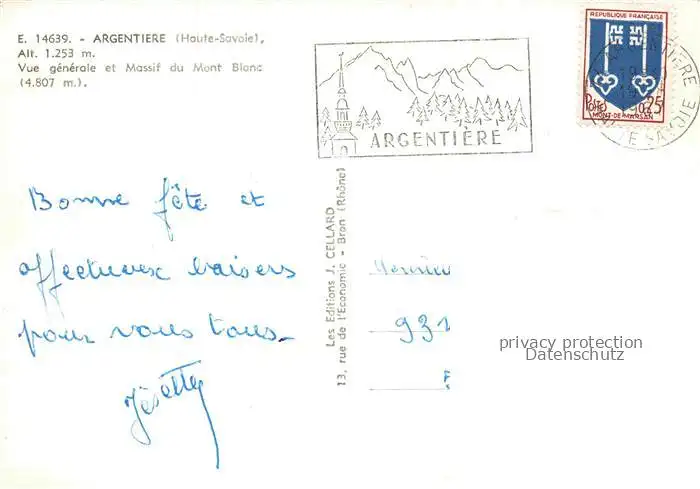 E. 14639. - ARGENTIERE (Haute-Savoie),
Alt. 1.253 m.
Vue générale et Massif du Mont Blanc
(4.807 m.).
ARGENTIÈRE
REPUBLIQUE FRANÇAISE
POSTES 0,25
MONT-DE-MARSAN
HTE SAVOIE
Bonne fête et
affectueux baisers
pour vous tous_
Les Editions J. CELLARD
13, rue de l'Economie - Bron (Rhône)
931
privacy protection
Datenschutz